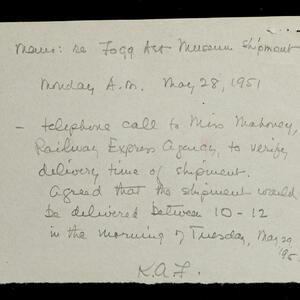 Memo: re Fogg Art Museum shipment
Monday A.M. May 28, 1951
- telephone call to Miss Mahoney,
Railway Express Agency, to verify
delivery time of shipment.
Agreed that the shipment would
be delivered between 10-12
in the morning of Tuesday, May 29,
K.A.F.